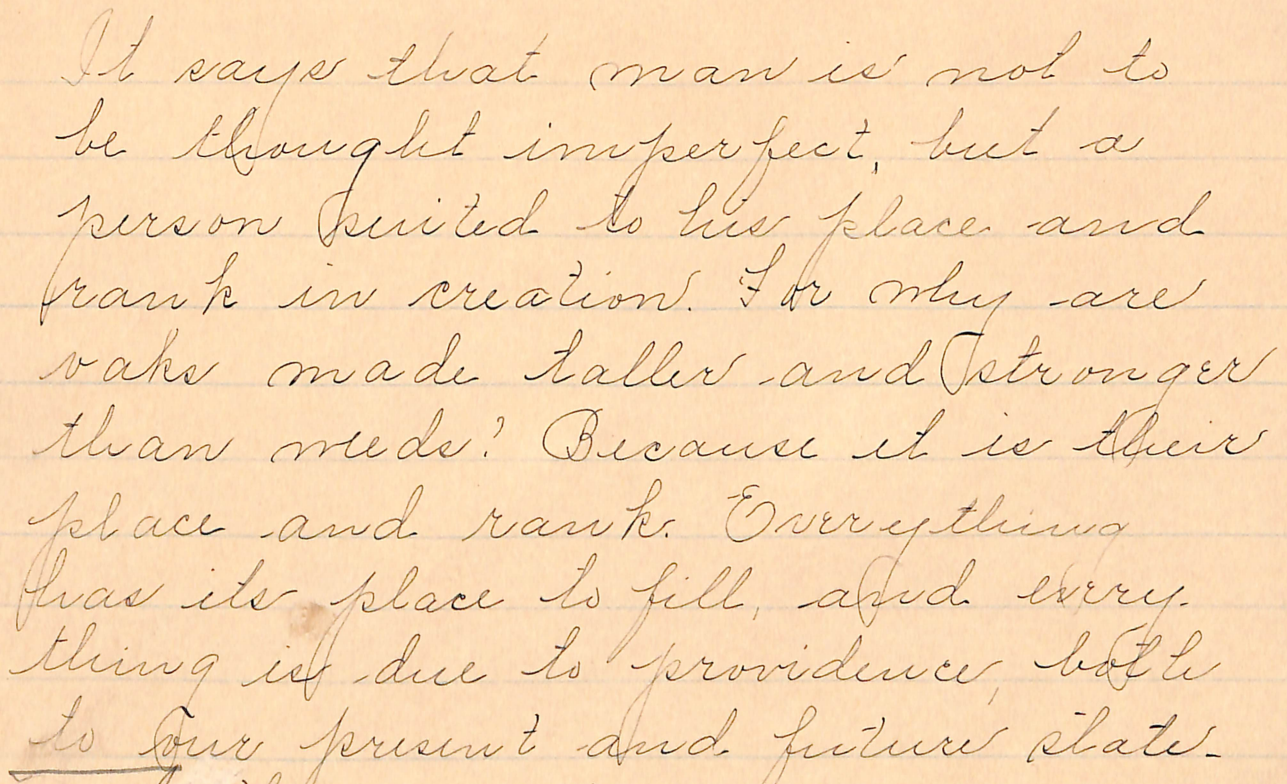 It says that man is not to
be thought imperfect, but a
person suited to his place and
rank in creation. For why are
oaks made taller and stronger
than weeds? Because it is their
place and rank. Everything
has its place to fill, and every-
thing is due to providence, both
to our present and future state.